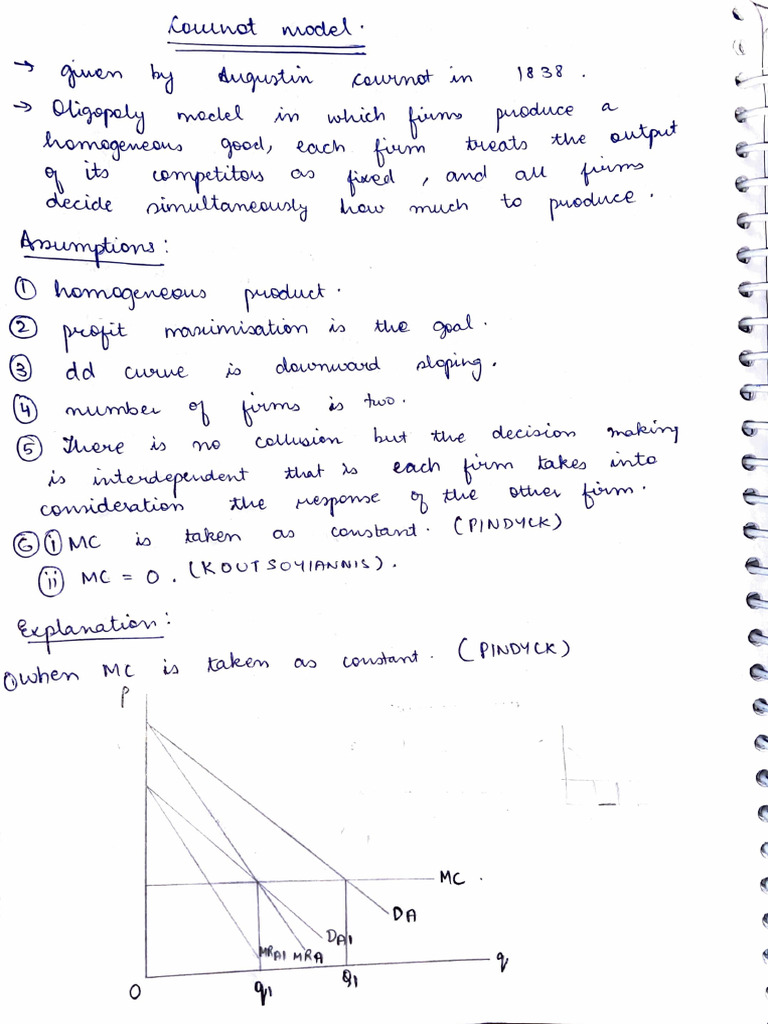 Cournot model.
→ given by Augustin Cournot in 1838.
→ Oligopoly model in which firms produce a
homogeneous good, each firm treats the output
of its competitors as fixed, and all firms
decide simultaneously how much to produce.
Assumptions:
① homogeneous product.
② profit maximisation is the goal.
③ dd curve is downward sloping.
④ number of firms is two.
⑤ There is no collusion but the decision making
is interdependent that is each firm takes into
consideration the response of the other firm.
⑥ ⓘ MC is taken as constant. (PINDYCK)
ⓘⓘ MC = 0. (KOUTSOYIANNIS).
Explanation:
① when MC is taken as constant. (PINDYCK)
P
MC
DA
DA1
MRA1 MRA
q
O
q1
Q1